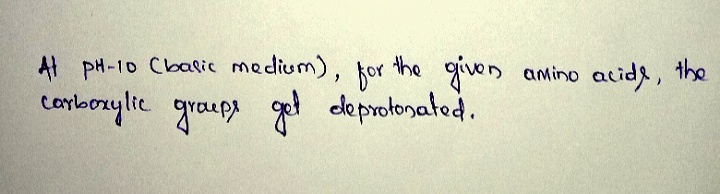 At pH-10 (basic medium), for the given amino acids, the
carboxylic groups get deprotonated.